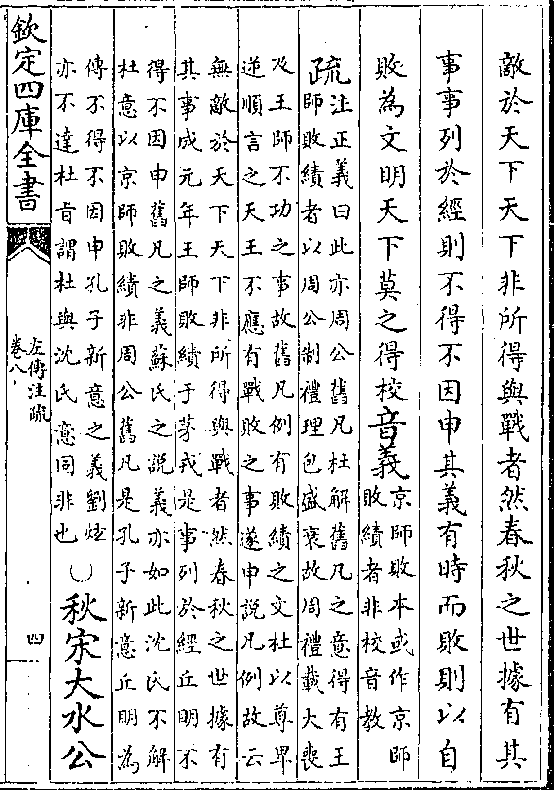 敵於天下天下非所得與戰者然春秋之世據有其
事事列於經則不得不因申其義有時而敗則以自
敗為文明天下莫之得校音義京師敗本或作京師
敗績者非校音教
疏注正義曰此亦周公舊凡杜解舊凡之意得有王
師敗績者以周公制禮理包盛衰故周禮載大喪
及王師不功之事故舊凡例有敗績之文杜以尊卑
逆順言之天王不應有戰敗之事遂申說凡例故云
無敵於天下天下非所得與戰者然春秋之世據有
其事成元年王師敗績于茅戎是事列於經丘明不
得不因申舊凡之義蘇氏之說義亦如此沈氏不解
杜意以京師敗績非周公舊凡是孔子新意丘明為
傳不得不因申孔子新意之義劉炫
亦不達杜旨謂杜與沈氏意同非也
秋宋大水公
欽定四庫全書
左傳注疏
卷八
四